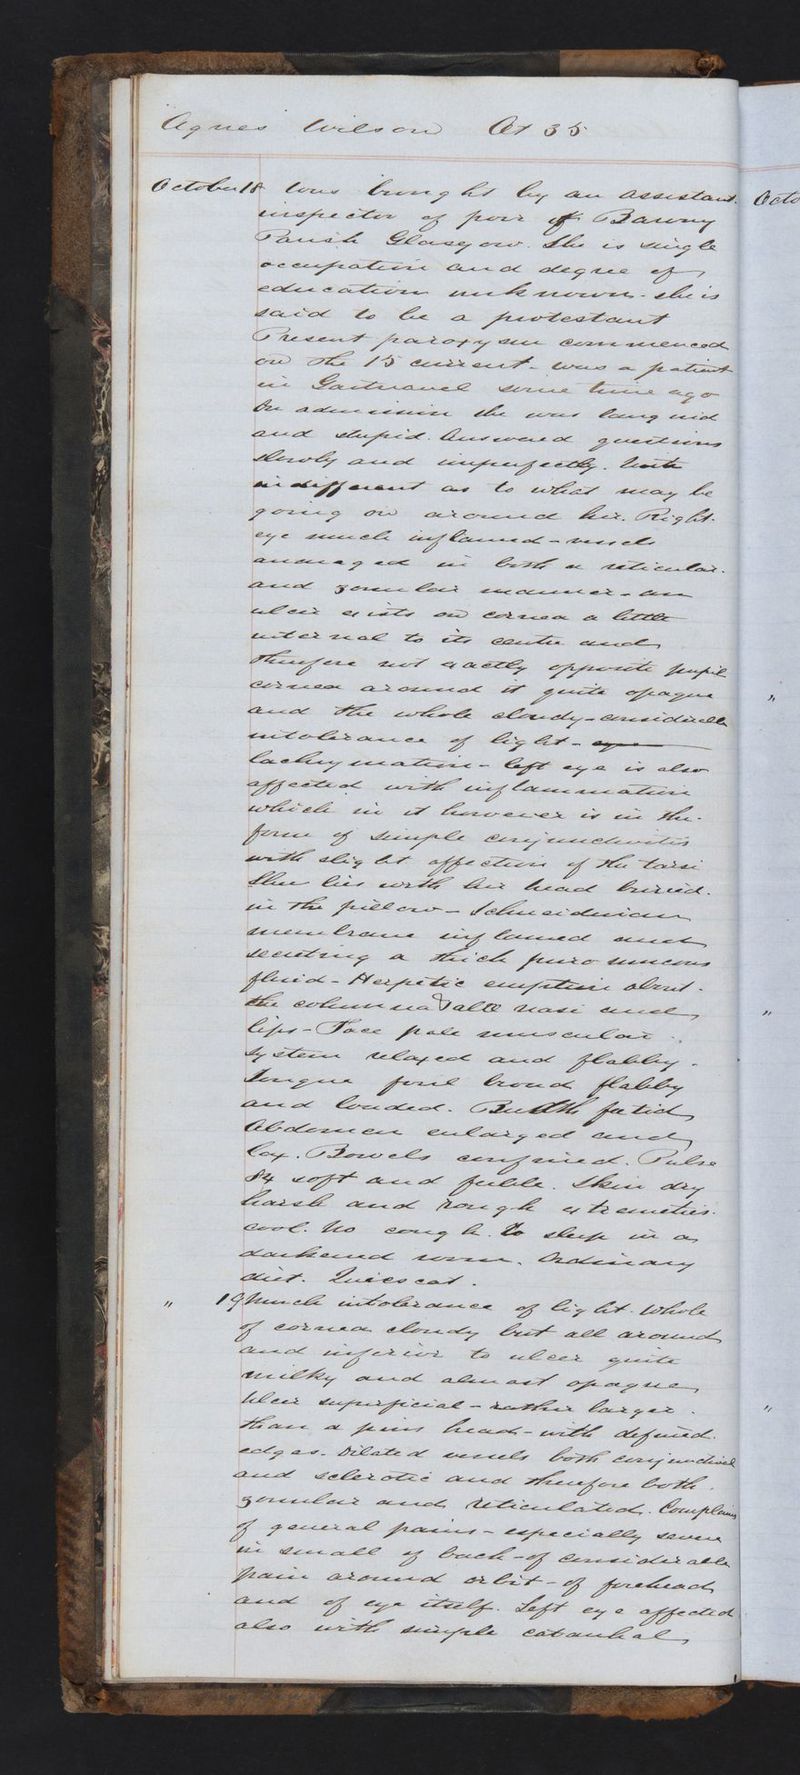 Agnes Wilson Æt 35
October 18 Was brought by an assistant
inspector of poor of Barony
Parish Glasgow. She is single
occupation and degree of
education unknown. she is
said to be a protestant
Present paroxysm commenced
on the 15 current - was a patient
in Gartnavel some time ago
On admission she was languid
and stupid. Answered questions
slowly and imperfectly. Quite
indifferent as to what may be
going on around her. Right
eye much inflamed - vessels
arranged in both a reticular
and zonular manner - an
ulcer exists on cornea a little
internal to its centre and
therefore not exactly opposite pupil
cornea around it quite opaque
and the whole cloudy - considerable
intolerance of light -
lachrymation - left eye is also
affected with inflammation
which in it however is in the
form of simple conjunctivitis
with slight affection of the tarsi
She lies with her head buried
in the pillow - Schneiderian
membrane inflamed and
secreting a thick puro mucous
fluid - Herpetic eruption about
the columna & alæ nasi and
lips - Face pale muscular
system relaxed and flabby.
Tongue foul broad flabby
and loaded. Breath fœtid
Abdomen enlarged and
lax. Bowels confined. Pulse
84 soft and feeble. Skin dry
harsh and rough extremities
cool. No cough. To sleep in a
darkened room. Ordinary
diet. Quiescat.
" 19 Much intolerance of light. Whole
of cornea cloudy but all around
and inferior to ulcer quite
milky and almost opaque
Ulcer superficial - rather larger
than a pins head - with defined
edges. Dilated vessels both conjunctival
and sclerotic and therefore both
zonular and reticulated. Complains
of general pains - especially severe
in small of back - of considerable
pain around orbit - of forehead
and of eye itself. Left eye affected
also with simple catarrhal
Octo
"
"
"